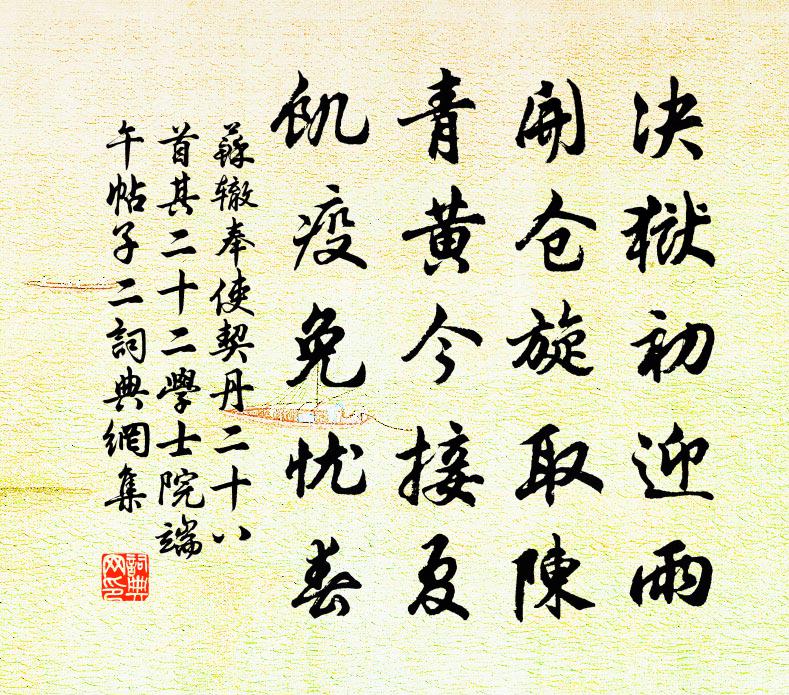 决獄初迎雨
開仓旋取陳
青黄今接夏
飢疫免忧春
蘇辙奉使契丹二十八
首其二十二學士院端
午帖子二詞典網集
詞典
网印